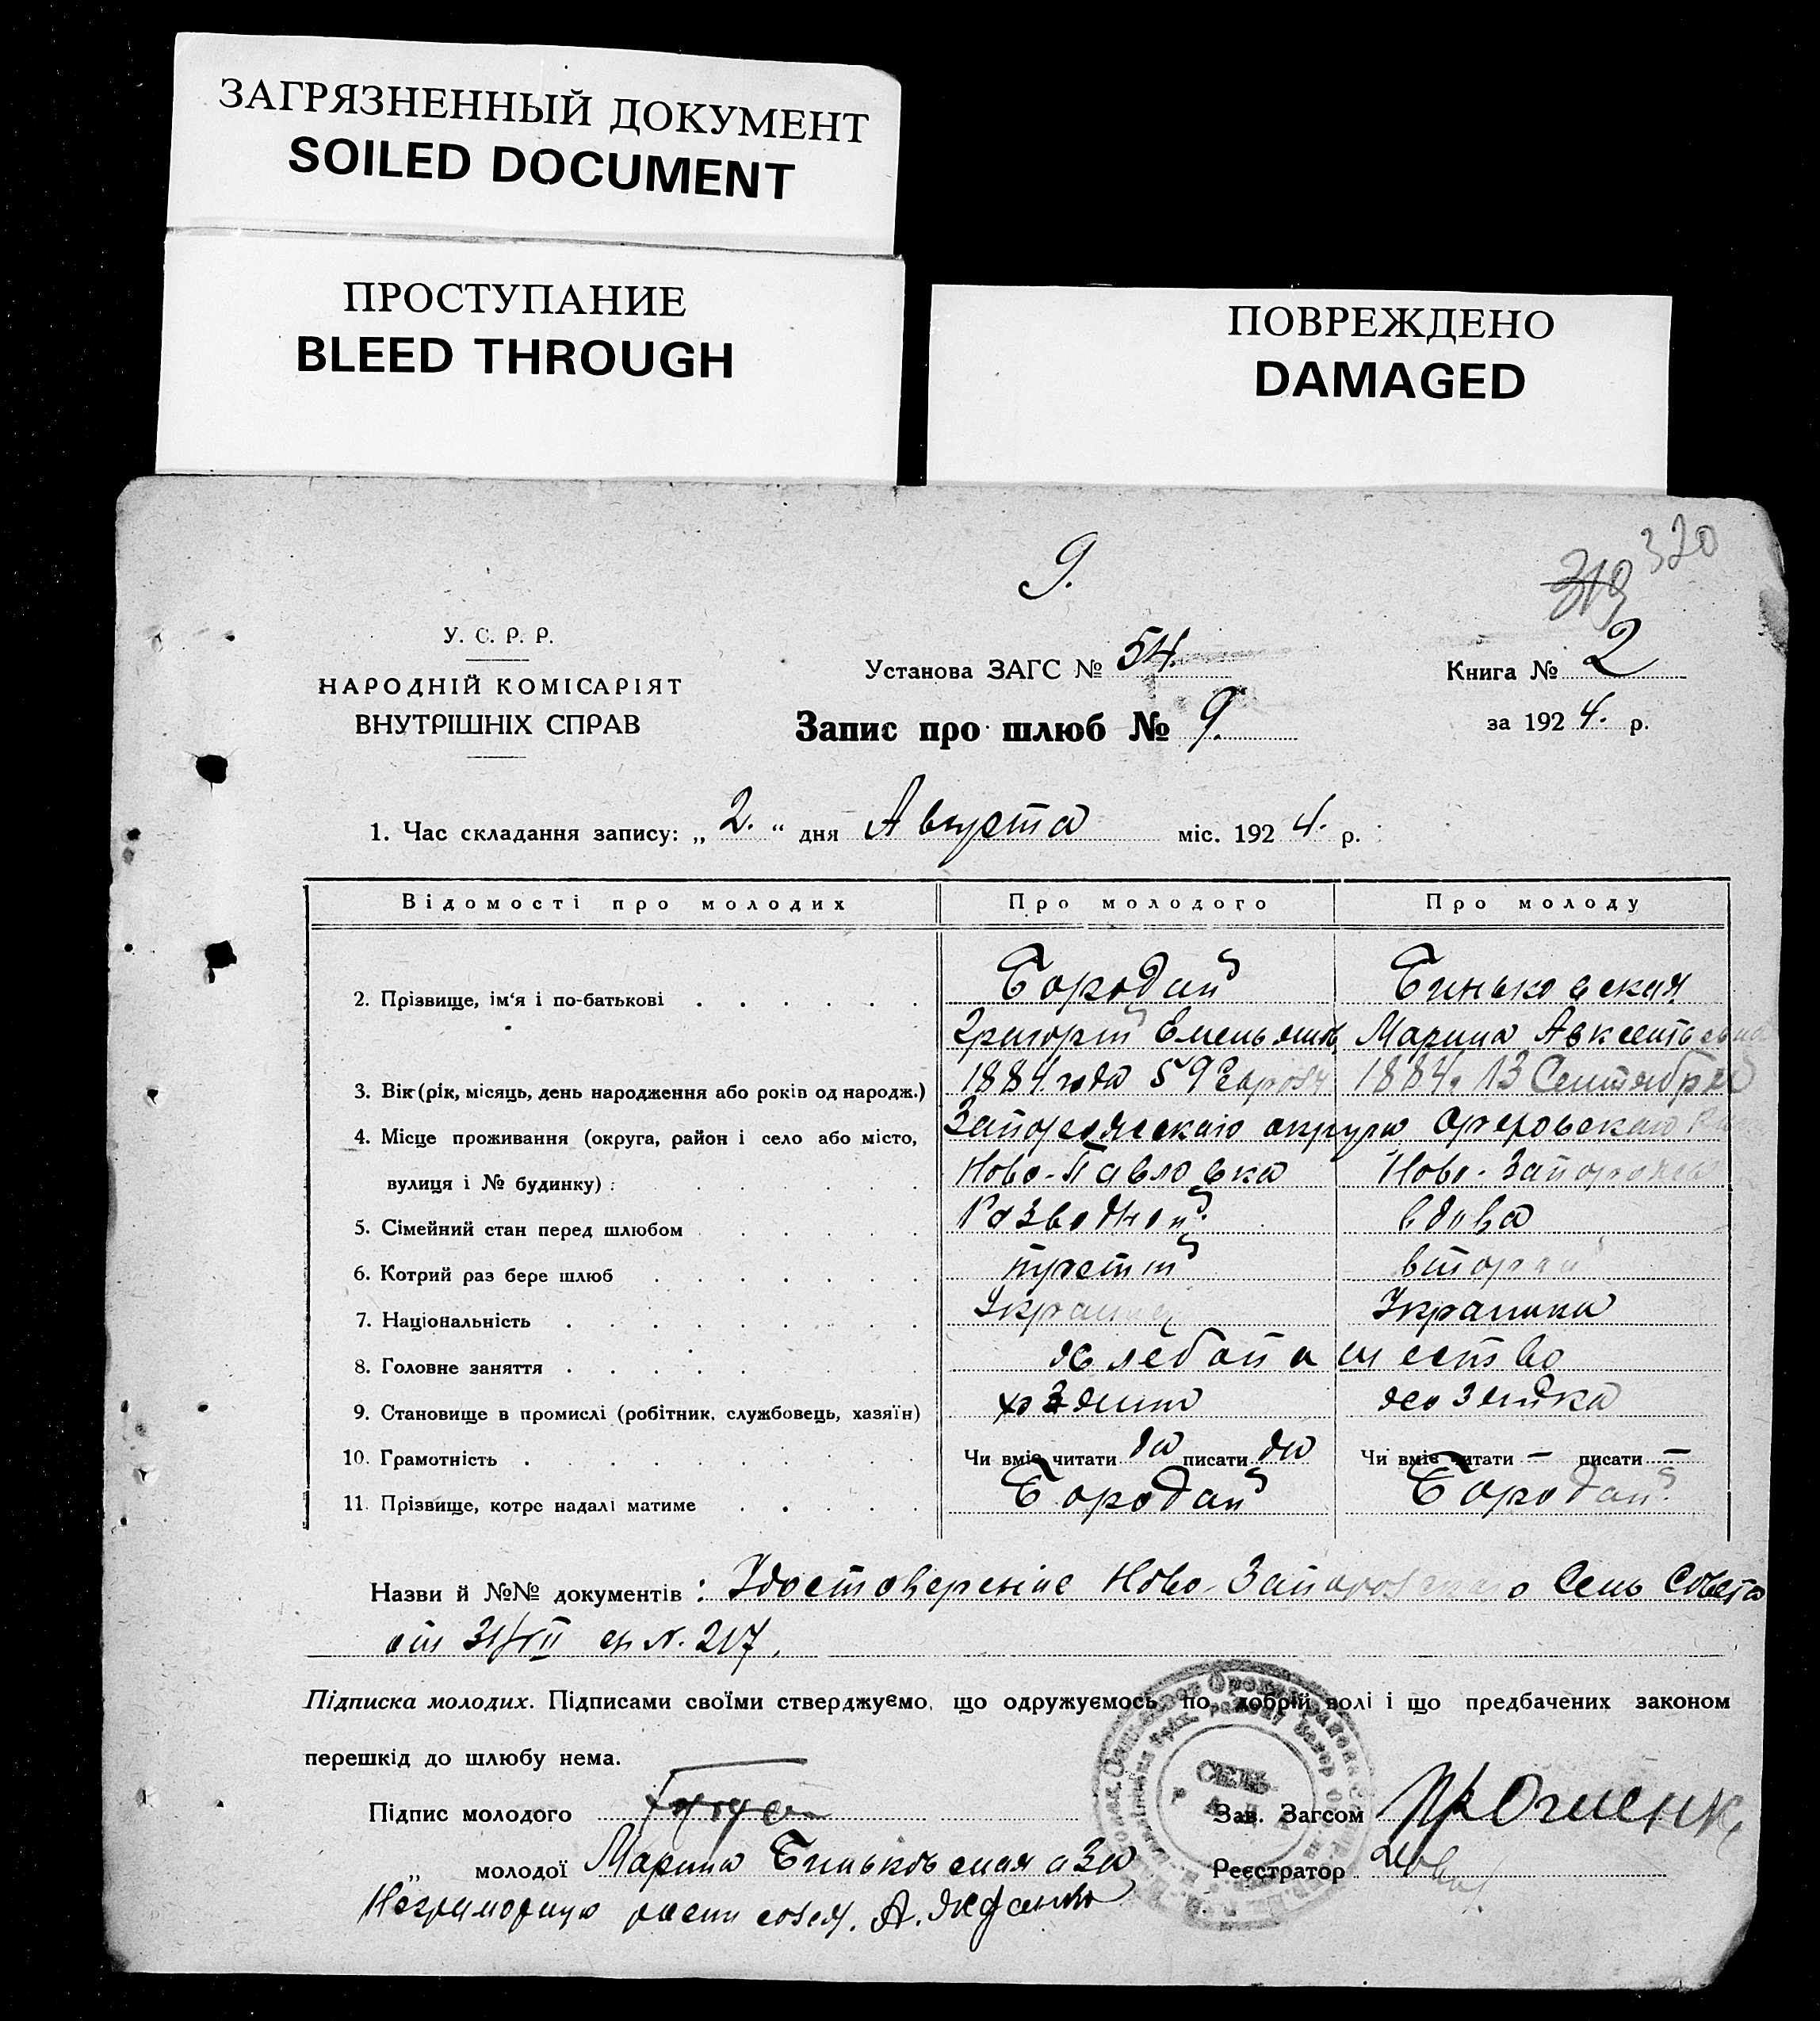 ЗАГРЯЗНЕННЫЙ ДОКУМЕНТ
SOILED DOCUMENT
ПРОСТУПАНИЕ
BLEED THROUGH
ПОВРЕЖДЕНО
DAMAGED
9.
319 320
У. С. Р. Р.
НАРОДНІЙ КОМІСАРІЯТ
ВНУТРІШНІХ СПРАВ
Установа ЗАГС № 54.
Запис про шлюб № 9.
Книга № 2
за 1924. р.
1. Час складання запису: „2.“ дня Августа міс. 1924. р.
Відомості про молодих Про молодого Про молоду
2. Прізвище, ім'я і по-батькові Бородай Биньковская
Григорий Емельянов Марина Авксентьевна
3. Вік (рік, місяць, день народження або років од народж.) 1884 года 1884. 13 Сентября
4. Місце проживання (округа, район і село або місто, Запорожскаго округа Ореховскаго
вулиця і № будинку): Ново-Павловка Ново-Запорожье
5. Сімейний стан перед шлюбом Разводной вдова
6. Котрий раз бере шлюб третий второй
7. Національність Украинец Украинка
8. Головне заняття хлебопашество
9. Становище в промислі (робітник, службовець, хазяїн) хозяин хозяйка
10. Грамотність Чи вміє читати да писати да Чи вміє читати — писати —
11. Прізвище, котре надалі матиме Бородай Бородай
Назви й №№ документів: Удостоверение Ново-Запорожскаго Сель Совета
от 31/VII с № 217.
Підписка молодих. Підписами своїми стверджуємо, що одружуємось по добрій волі і що предбачених законом
перешкід до шлюбу нема.
Підпис молодого
Зав. Загсом
„ молодої Марина Биньковская а за
Реєстратор
Неграмотную А.